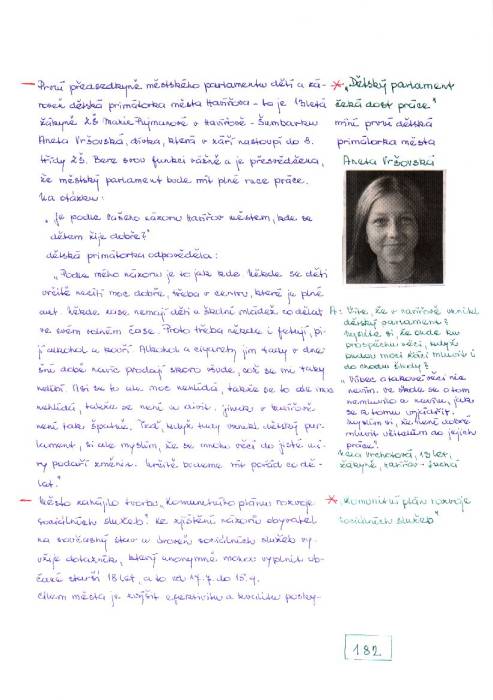 První předsedkyně městského parlamentu dětí a zá-
roveň dětská primátorka města Havířova - to je 13letá
žákyně ZŠ Marie Pujmanové v Havířově - Šumbarku
Aneta Vršovská, dívka, která v září nastoupí do 8.
třídy ZŠ. Bere svou funkci vážně a je přesvědčena,
že městský parlament bude mít plné ruce práce.
Na otázku:
"Je podle Vašeho názoru Havířov městem, kde se
dětem žije dobře?"
dětská primátorka odpověděla:
"Podle mého názoru je to jak kde. Někde se děti
určitě necítí moc dobře, třeba v centru, které je plné
aut. Někde zase nemají děti a školní mládež co dělat
ve svém volném čase. Proto třeba někde i fetují, pi-
jí alkohol a kouří. Alkohol a cigarety jim tady v dne-
šní době navíc prodají skoro všude, což se mi taky
nelíbí. Asi se to ale moc nehlídá, takže se to ale moc
nehlídá, takže se není co divit. Jinak v Havířově
není tak špatně. Teď, když tady vznikl dětský par-
lament, si ale myslím, že se mnoho věcí do jisté mí-
ry podaří změnit. Určitě budeme mít pořád co dě-
lat."
Město zahájilo tvorbu "Komunitního plánu rozvoje
sociálních služeb". Ke zjištění názorů obyvatel
na současný stav a úroveň sociálních služeb vy-
užije dotazník, který anonymně mohou vyplnit ob-
čané starší 18 let, a to od 17.7. do 15.9.
Cílem města je zvýšit efektivitu a kvalitu posky-
"Dětský parlament
čeká dost práce"
míní první dětská
primátorka města
Aneta Vršovská
A: Víte, že v Havířově vznikl
dětský parlament?
Myslíte si, že bude ku
prospěchu věci, když
budou moci žáci mluvit i
do chodu školy?
"Vůbec o takové věci nic
nevím. Ve škole se o tom
nemluvilo a nevím, jak
se k tomu vyjádřit.
Myslím si, že není dobré
mluvit učitelům do jejich
práce."
Vrchotová, 13 let,
žákyně, Havířov - Suchá
"Komunitní plán rozvoje
sociálních služeb"
182